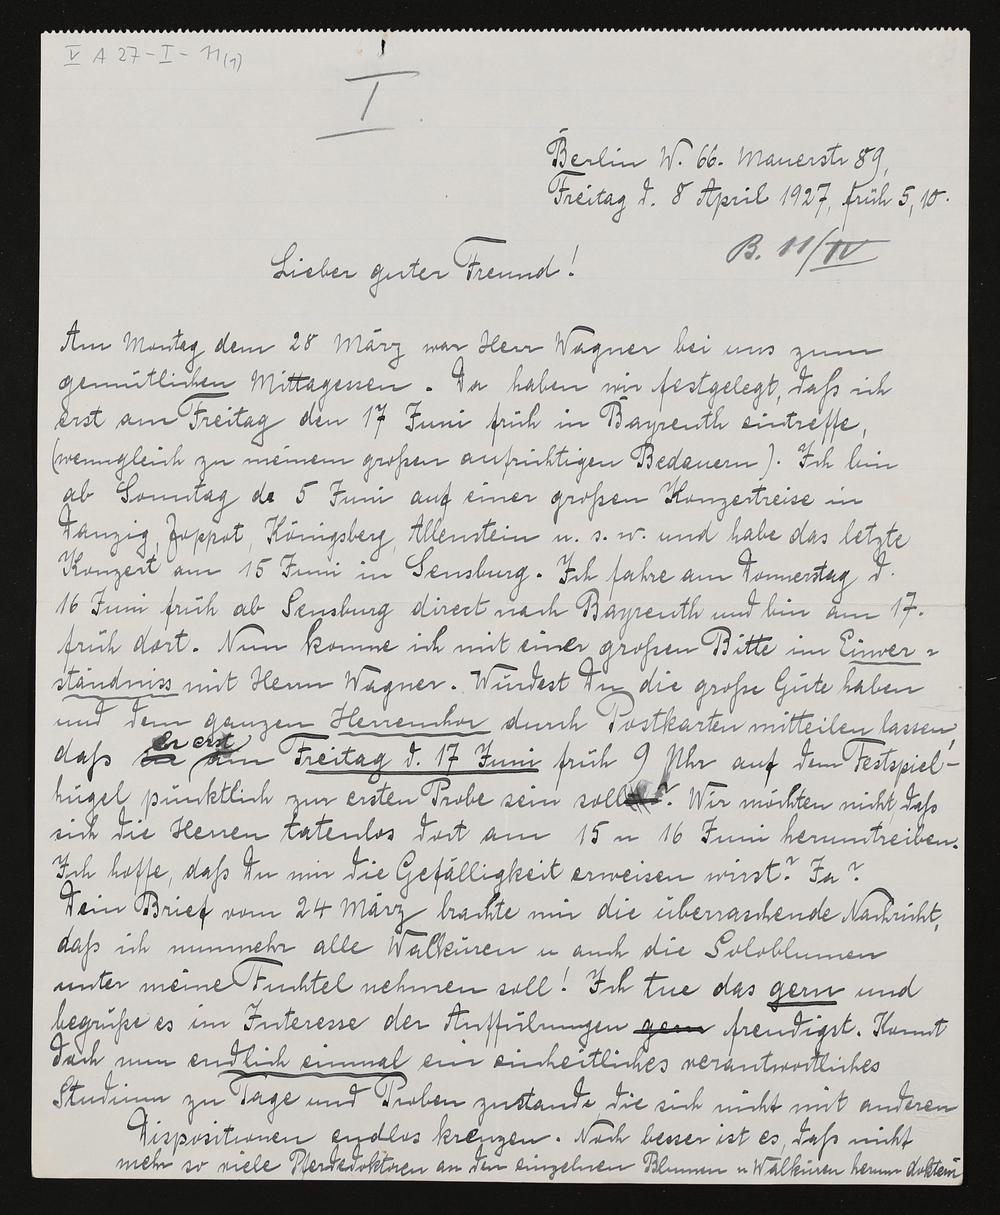 V A 27-I-11(1)
I
Berlin W. 66. Mauerstr 89,
Freitag d. 8 April 1927, früh 5,10.
B. 11/IV
Lieber guter Freund!
Am Montag dem 28 März war Herr Wagner bei uns zum
gemütlichen Mittagessen. Da haben wir festgelegt, daß ich
erst am Freitag den 17 Juni früh in Bayreuth eintreffe,
(wenngleich zu meinem großen aufrichtigen Bedauern). Ich bin
ab Sonntag de 5 Juni auf einer großen Konzertreise in
Danzig, Zoppot, Königsberg, Allenstein u. s. w. und habe das letzte
Konzert am 15 Juni in Sensburg. Ich fahre am Donnerstag d.
16 Juni früh ab Sensburg direct nach Bayreuth und bin am 17.
früh dort. Nun komme ich mit einer großen Bitte im Einver=
ständniss mit Herrn Wagner. Würdest Du die große Güte haben
und dem ganzen Herrenchor durch Postkarten mitteilen lassen,
daß er erst am Freitag d. 17 Juni früh 9 Uhr auf dem Festspiel-
hügel pünktlich zur ersten Probe sein soll. Wir möchten nicht, daß
sich die Herren tatenlos dort am 15 u 16 Juni herumtreiben.
Ich hoffe, daß Du mir die Gefälligkeit erweisen wirst? Ja?
Dein Brief vom 24 März brachte mir die überraschende Nachricht,
daß ich nunmehr alle Walküren u auch die Soloblumen
unter meine Fuchtel nehmen soll! Ich tue das gern und
begrüße es im Interesse der Aufführungen gern freudigst. Kommt
doch nun endlich einmal ein einheitliches verantwortliches
Studium zu Tage und Proben zustande, die sich nicht mit anderen
Dispositionen endlos kreuzen. Noch besser ist es, daß nicht
mehr so viele Pferdedoktoren an den einzelnen Blumen u Walküren herum doktern